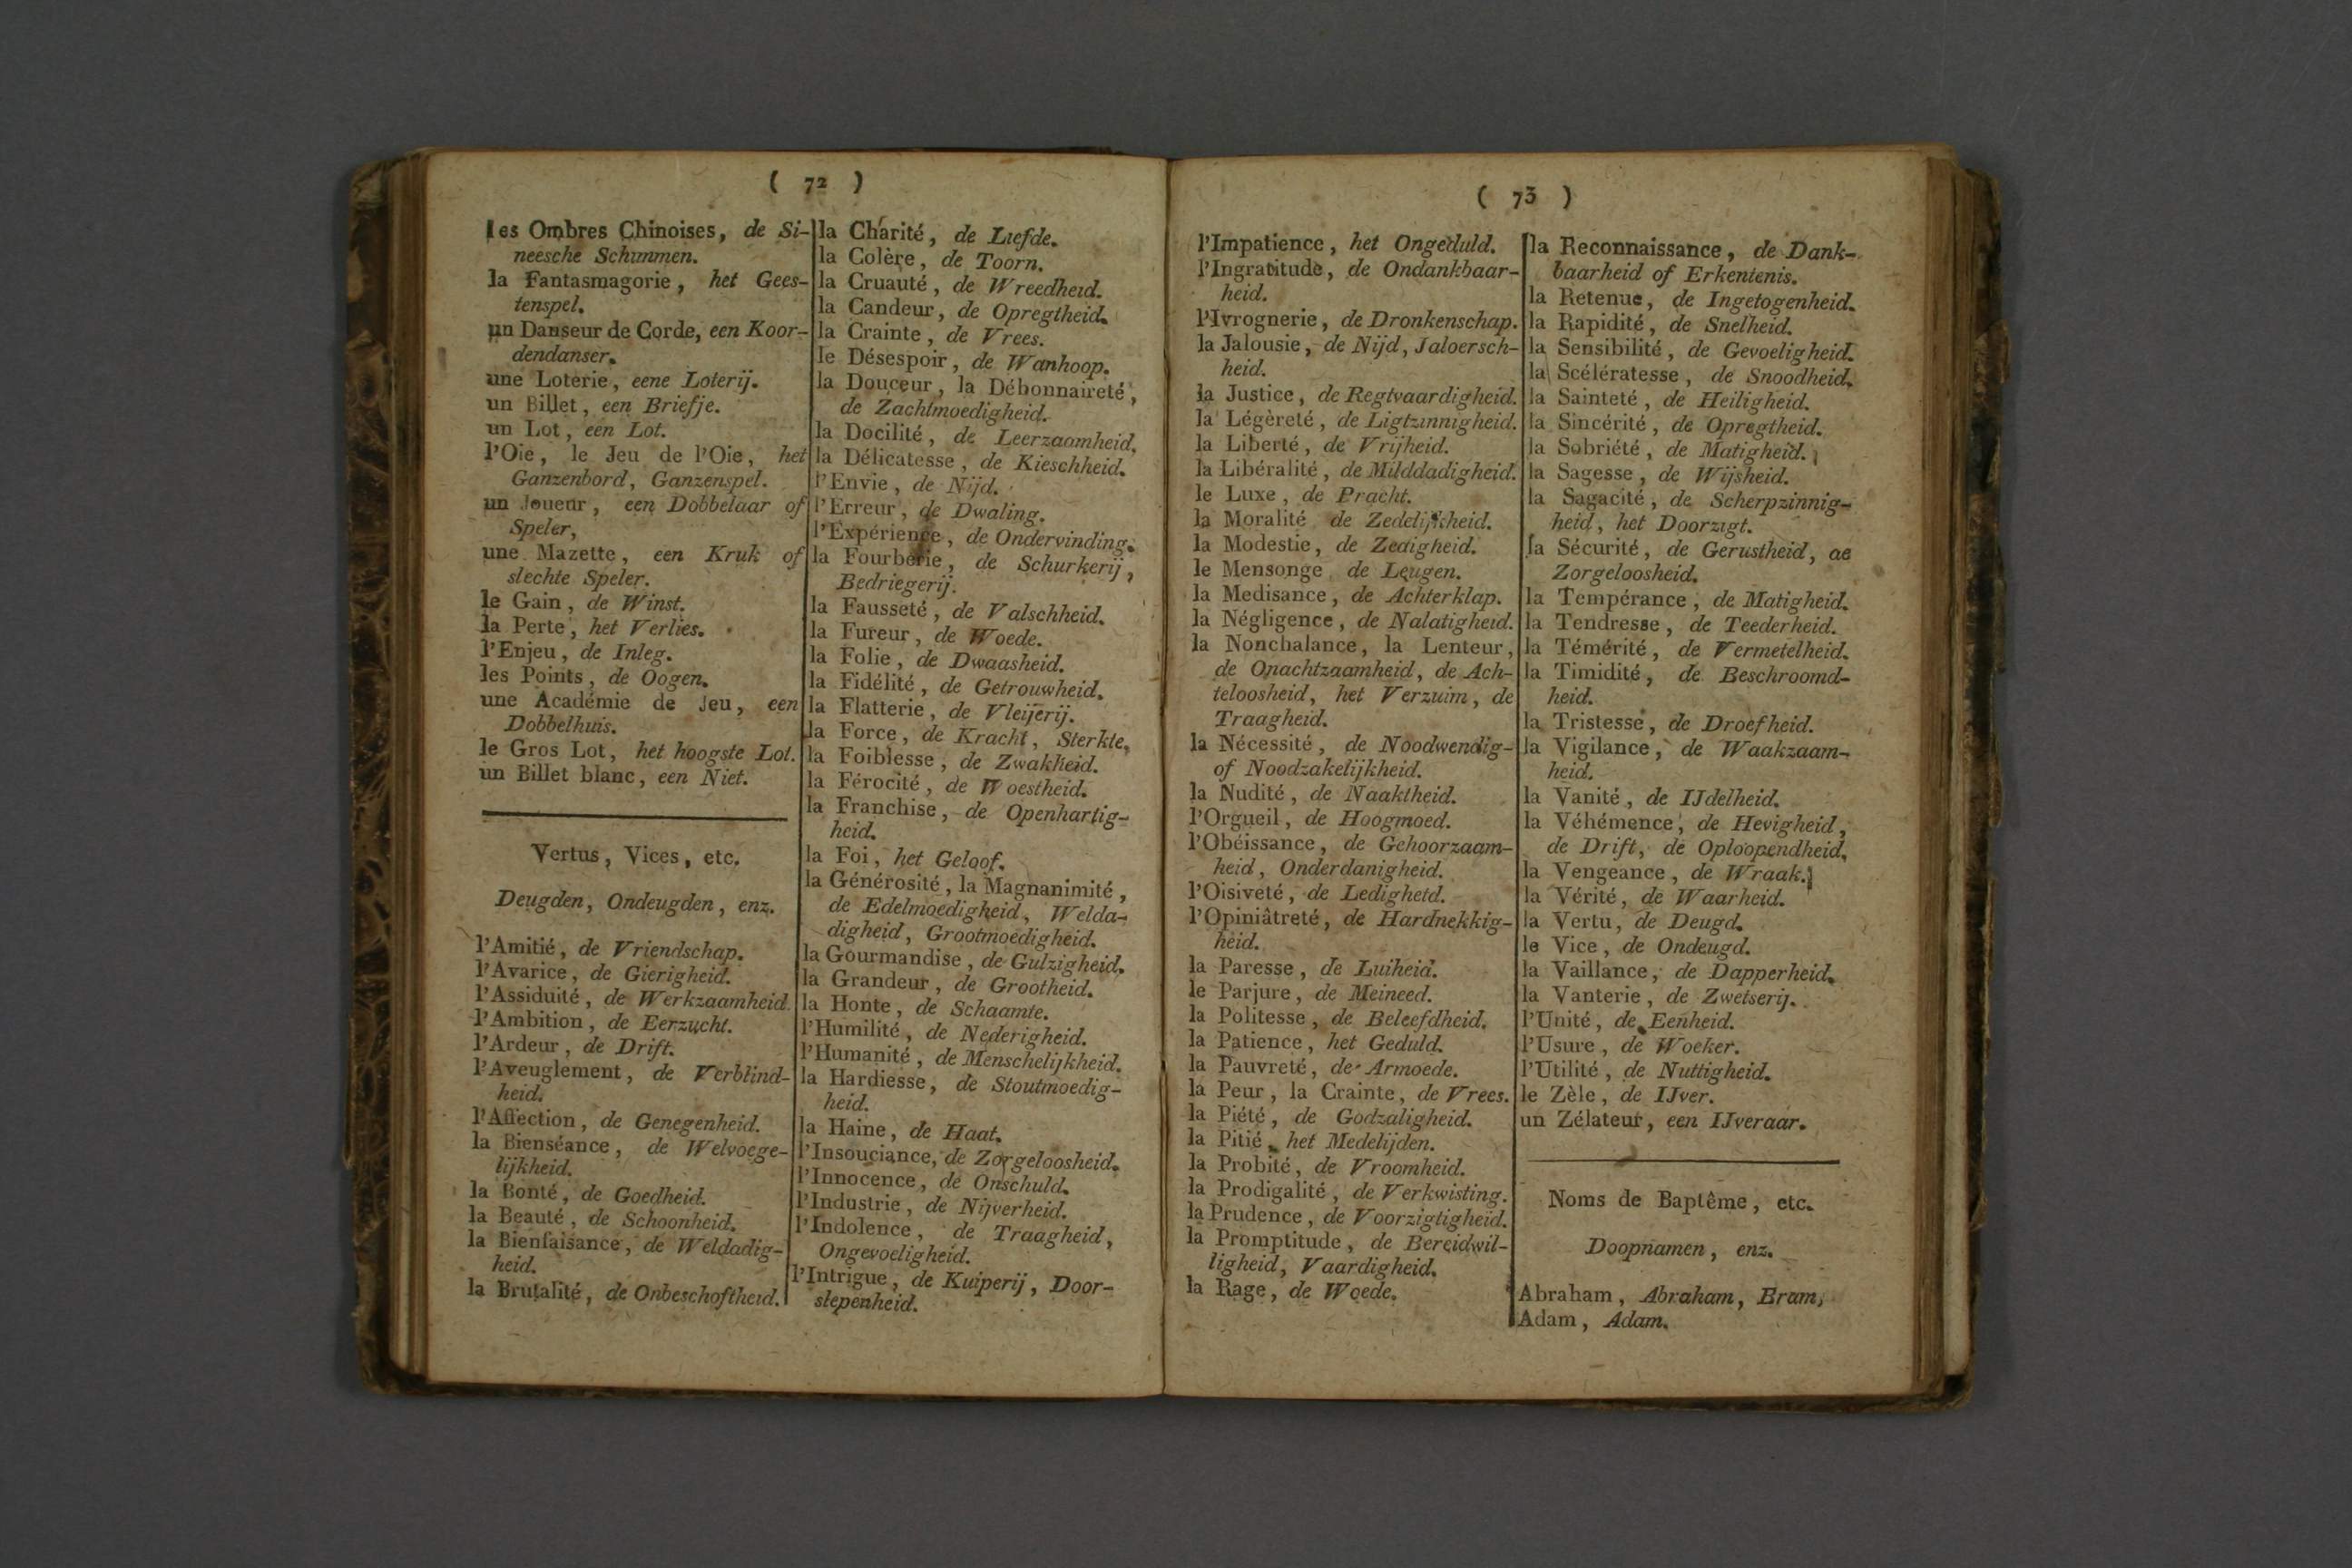 ( 72 )
les Ombres Chinoises, de Si-
neesche Schimmen.
la Fantasmagorie, het Gees-
tenspel.
un Danseur de Corde, een Koor-
dendanser.
une Loterie, eene Loterij.
un Billet, een Briefje.
un Lot, een Lot.
l'Oie, le Jeu de l'Oie, het
Ganzenbord, Ganzenspel.
un Joueur, een Dobbelaar of
Speler,
une Mazette, een Kruk of
slechte Speler.
le Gain, de Winst.
la Perte, het Verlies.
l'Enjeu, de Inleg.
les Points, de Oogen.
une Académie de Jeu, een
Dobbelhuis.
le Gros Lot, het hoogste Lot.
un Billet blanc, een Niet.
Vertus, Vices, etc.
Deugden, Ondeugden, enz.
l'Amitié, de Vriendschap.
l'Avarice, de Gierigheid.
l'Assiduité, de Werkzaamheid.
l'Ambition, de Eerzucht.
l'Ardeur, de Drift.
l'Aveuglement, de Verblind-
heid.
l'Affection, de Genegenheid.
la Bienséance, de Welvoege-
lijkheid.
la Bonté, de Goedheid.
la Beauté, de Schoonheid.
la Bienfaisance, de Weldadig-
heid.
la Brutalité, de Onbeschoftheid.
la Charité, de Liefde.
la Colère, de Toorn.
la Cruauté, de Wreedheid.
la Candeur, de Opregtheid.
la Crainte, de Vrees.
le Désespoir, de Wanhoop.
la Douceur, la Débonnaireté,
de Zachtmoedigheid.
la Docilité, de Leerzaamheid,
la Délicatesse, de Kieschheid.
l'Envie, de Nijd.
l'Erreur, de Dwaling.
l'Expérience, de Ondervinding.
la Fourberie, de Schurkerij,
Bedriegerij.
la Fausseté, de Valschheid.
la Fureur, de Woede.
la Folie, de Dwaasheid.
la Fidélité, de Getrouwheid.
la Flatterie, de Vleijerij.
la Force, de Kracht, Sterkte,
la Foiblesse, de Zwakheid.
la Férocité, de Woestheid.
la Franchise, de Openhartig-
heid.
la Foi, het Geloof.
la Générosité, la Magnanimité,
de Edelmoedigheid, Welda-
digheid, Grootmoedigheid.
la Gourmandise, de Gulzigheid.
la Grandeur, de Grootheid.
la Honte, de Schaamte.
l'Humilité, de Nederigheid.
l'Humanité, de Menschelijkheid.
la Hardiesse, de Stoutmoedig-
heid.
la Haine, de Haat.
l'Insouciance, de Zorgeloosheid.
l'Innocence, de Onschuld.
l'Industrie, de Nijverheid.
l'Indolence, de Traagheid,
Ongevoeligheid.
l'Intrigue, de Kuiperij, Door-
slepenheid.
( 73 )
l'Impatience, het Ongeduld.
l'Ingratitude, de Ondankbaar-
heid.
l'Ivrognerie, de Dronkenschap.
la Jalousie, de Nijd, Jaloersch-
heid.
la Justice, de Regtvaardigheid.
la Légèreté, de Ligtzinnigheid.
la Liberté, de Vrijheid.
la Libéralité, de Milddadigheid.
le Luxe, de Pracht.
la Moralité de Zedelijkheid.
la Modestie, de Zedigheid.
le Mensonge de Leugen.
la Medisance, de Achterklap.
la Négligence, de Nalatigheid.
la Nonchalance, la Lenteur,
de Onachtzaamheid, de Ach-
teloosheid, het Verzuim, de
Traagheid.
la Nécessité, de Noodwendig-
of Noodzakelijkheid.
la Nudité, de Naaktheid.
l'Orgueil, de Hoogmoed.
l'Obéissance, de Gehoorzaam-
heid, Onderdanigheid.
l'Oisiveté, de Ledigheid.
l'Opiniâtreté, de Hardnekkig-
heid.
la Paresse, de Luiheid.
le Parjure, de Meineed.
la Politesse, de Beleefdheid.
la Patience, het Geduld.
la Pauvreté, de Armoede.
la Peur, la Crainte, de Vrees.
la Piété, de Godzaligheid.
la Pitié, het Medelijden.
la Probité, de Vroomheid.
la Prodigalité, de Verkwisting.
la Prudence, de Voorzigtigheid.
la Promptitude, de Bereidwil-
ligheid, Vaardigheid.
la Rage, de Woede.
la Reconnaissance, de Dank-
baarheid of Erkentenis.
la Retenue, de Ingetogenheid.
la Rapidité, de Snelheid.
la Sensibilité, de Gevoeligheid.
la Scélératesse, de Snoodheid.
la Sainteté, de Heiligheid.
la Sincérité, de Opregtheid.
la Sobriété, de Matigheid.
la Sagesse, de Wijsheid.
la Sagacité, de Scherpzinnig-
heid, het Doorzigt.
la Sécurité, de Gerustheid, de
Zorgeloosheid.
la Tempérance, de Matigheid.
la Tendresse, de Teederheid.
la Témérité, de Vermetelheid.
la Timidité, de Beschroomd-
heid.
la Tristesse, de Droefheid.
la Vigilance, de Waakzaam-
heid.
la Vanité, de IJdelheid.
la Véhémence, de Hevigheid,
de Drift, de Oploopendheid,
la Vengeance, de Wraak.
la Vérité, de Waarheid.
la Vertu, de Deugd.
le Vice, de Ondeugd.
la Vaillance, de Dapperheid.
la Vanterie, de Zwetserij.
l'Unité, de Eenheid.
l'Usure, de Woeker.
l'Utilité, de Nuttigheid.
le Zèle, de IJver.
un Zélateur, een IJveraar.
Noms de Baptême, etc.
Doopnamen, enz.
Abraham, Abraham, Bram,
Adam, Adam.